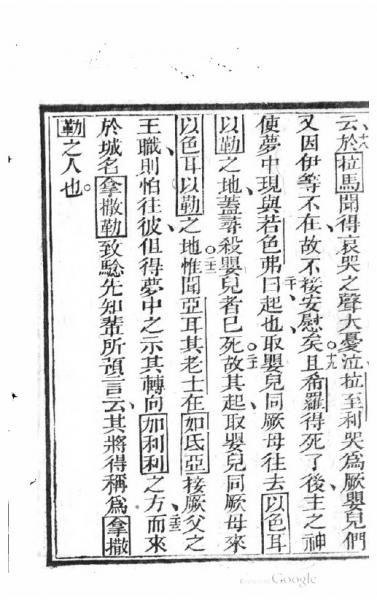 云於拉馬聞得哀哭之聲大憂泣拉至利哭爲厥嬰兒們
十八
又因伊等不在故不接安慰矣且希羅得死了後主之神
十九
使夢中現與若色弗曰起也取嬰兒同厥母往去以色耳
二十
以勒之地蓋尋殺嬰兒者已死故其起取嬰兒同厥母來
二一
以色耳以勒之地惟聞亞耳其老士在如氐亞接厥父之
二二
王職則怕往彼但得夢中之示其轉向加利利之方而來
二三
於城名拿撒勒致騐先知輩所預言云其將得稱爲拿撒
勒之人也
Google